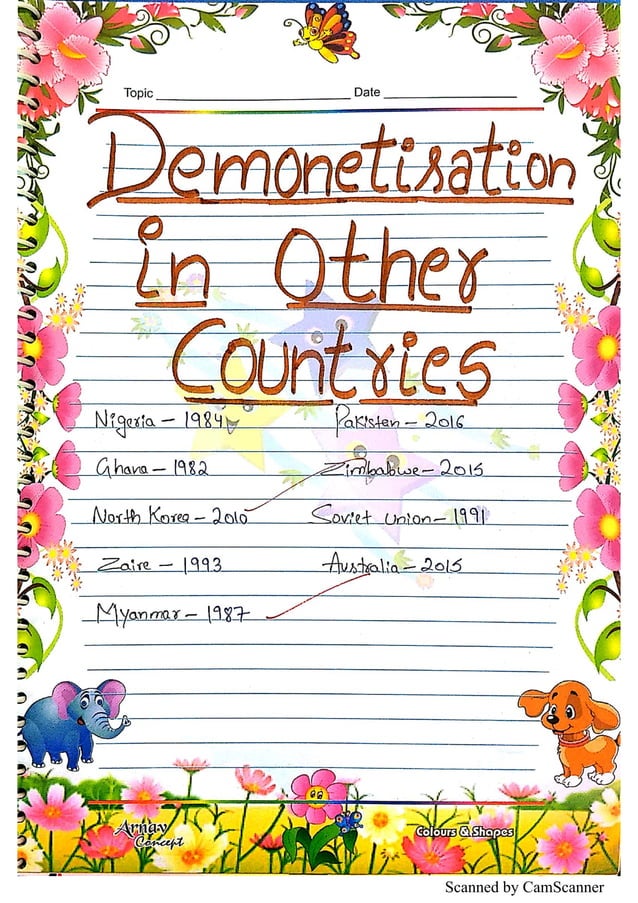 Topic Date
Demonetisation
in Other
Countries
Nigeria – 1984
Pakistan – 2016
Ghana – 1982
Zimbabwe – 2015
North Korea – 2010
Soviet union – 1991
Zaire – 1993
Australia – 2015
Myanmar – 1987
Arnav
Concept
Colours & Shapes
Scanned by CamScanner